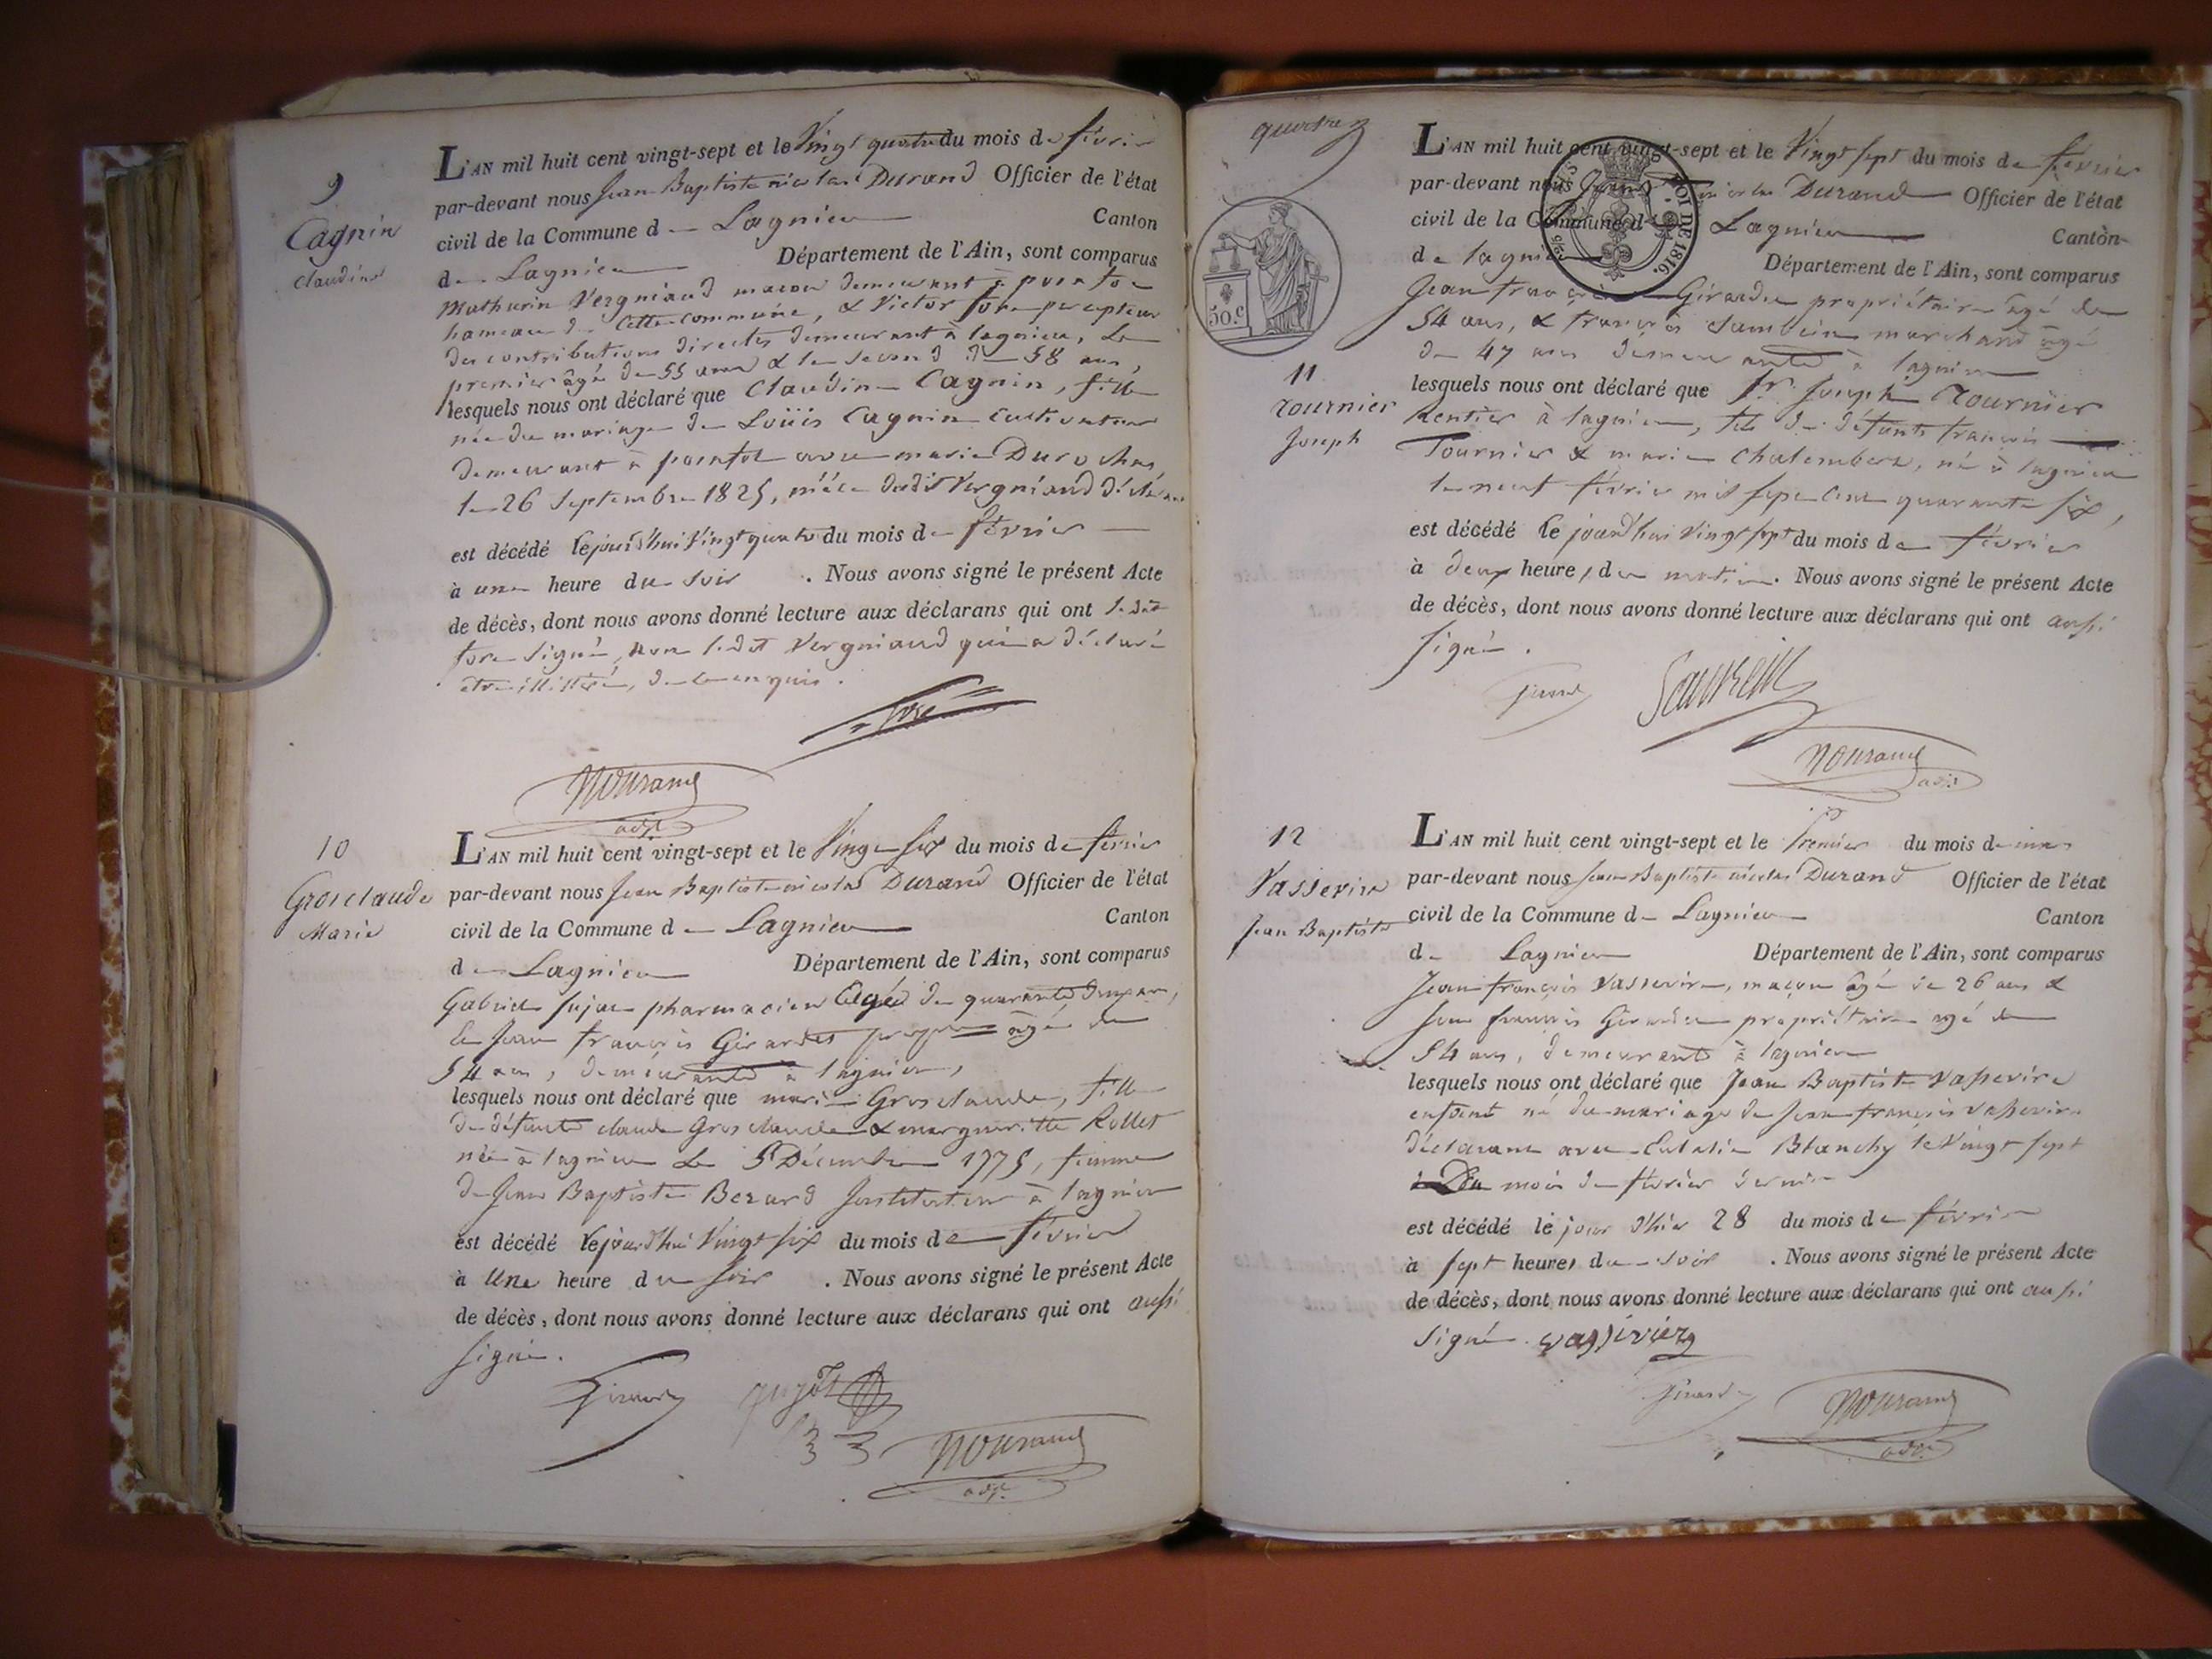 9
Cagnin
claudine
L'AN mil huit cent vingt-sept et le Vingt quatre du mois de février
par-devant nous Jean Baptiste nicolas Durand Officier de l'état
civil de la Commune de Lagnieu Canton
de Lagnieu Département de l'Ain, sont comparus
Mathurin Vergniaud maçon demeurant à
hameau de cette commune, & Victor percepteur
des contributions directes demeurant à lagnieu, Le
premier âgé de 55 ans & le second de 58 ans,
lesquels nous ont déclaré que Claudine Cagnin, fille
née du mariage de Loüis Cagnin Cultivateur
demeurant à avec marie Durochas
le 26 Septembre 1825, nièce dudit Vergniaud déclarant
est décédé le jourd'hui Vingt quatre du mois de février
à une heure du soir . Nous avons signé le présent Acte
de décès, dont nous avons donné lecture aux déclarans qui ont ledit
signé, non ledit Vergniaud qui a déclaré
être illitéré, de ce enquis.
Nourand
adjt
10
Grosclaude
Marie
L'AN mil huit cent vingt-sept et le Vingt six du mois de février
par-devant nous Jean Baptiste nicolas Durand Officier de l'état
civil de la Commune de Lagnieu Canton
de Lagnieu Département de l'Ain, sont comparus
Gabriel pharmacien âgé de quarante deux ans,
Le Jean françois âgé de
54 ans, demeurants à lagnieu,
lesquels nous ont déclaré que marie Grosclaude, fille
de défunts claude Grosclaude & marguerite Rollet
née à lagnieu Le 5 Décembre 1775, femme
de Jean Baptiste Berard Instituteur à lagnieu
est décédé le jourd'hui Vingt six du mois de février
à Une heure du soir . Nous avons signé le présent Acte
de décès, dont nous avons donné lecture aux déclarans qui ont aussi
signé.
Nourand
adjt
50.c
LOI DE 1816.
11
Tournier
Joseph
L'AN mil huit cent vingt-sept et le Vingt sept du mois de février
par-devant nous Durand Officier de l'état
civil de la Commune de Lagnieu Canton
de lagnieu Département de l'Ain, sont comparus
Jean françois propriétaire âgé de
54 ans, & françois marchand âgé
de 47 ans demeurants à lagnieu
lesquels nous ont déclaré que Sr. Joseph Tournier
Rentier à lagnieu, fils de défunts françois
Tournier & marie né à lagnieu
le neuf février mil sept cent quarante six,
est décédé le jourd'hui Vingt sept du mois de février
à deux heures du matin. Nous avons signé le présent Acte
de décès, dont nous avons donné lecture aux déclarans qui ont aussi
signé.
Nourand
adjt
12
Vassevire
Jean Baptiste
L'AN mil huit cent vingt-sept et le Premier du mois de mars
par-devant nous Jean Baptiste nicolas Durand Officier de l'état
civil de la Commune de Lagnieu Canton
de Lagnieu Département de l'Ain, sont comparus
Jean françois Vassevire, maçon âgé de 26 ans &
Jean françois propriétaire agé de
54 ans, demeurants à lagnieu
lesquels nous ont déclaré que Jean Baptiste Vassevire
enfant né du mariage de Jean françois Vassevire
déclarant avec Eulalie Blanchy le Vingt sept
Du mois de février dernier
est décédé le jour d'hier 28 du mois de février
à sept heures du soir . Nous avons signé le présent Acte
de décès, dont nous avons donné lecture aux déclarans qui ont aussi
signé.
Nourand
adjt